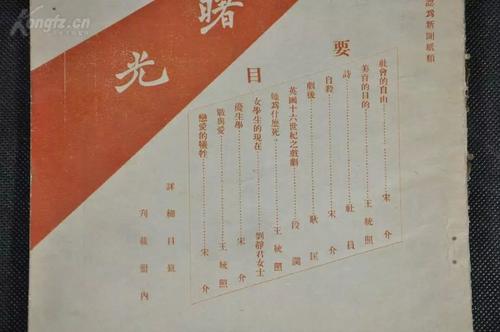 認爲新聞紙類
曙光
要目
社會的自由……………宋介
美育的目的……………王統照
詩……………社員
自殺……………宋介
劇後……………耿匡
英國十六世紀之戲劇………段瀾
她爲什麽死……………王統照
女學生的現在…………劉靜君女士
優生學……………宋介
戰與愛……………王統照
戀愛的犧牲……………宋介
詳細目錄
刋載册內
Kongfz.cn